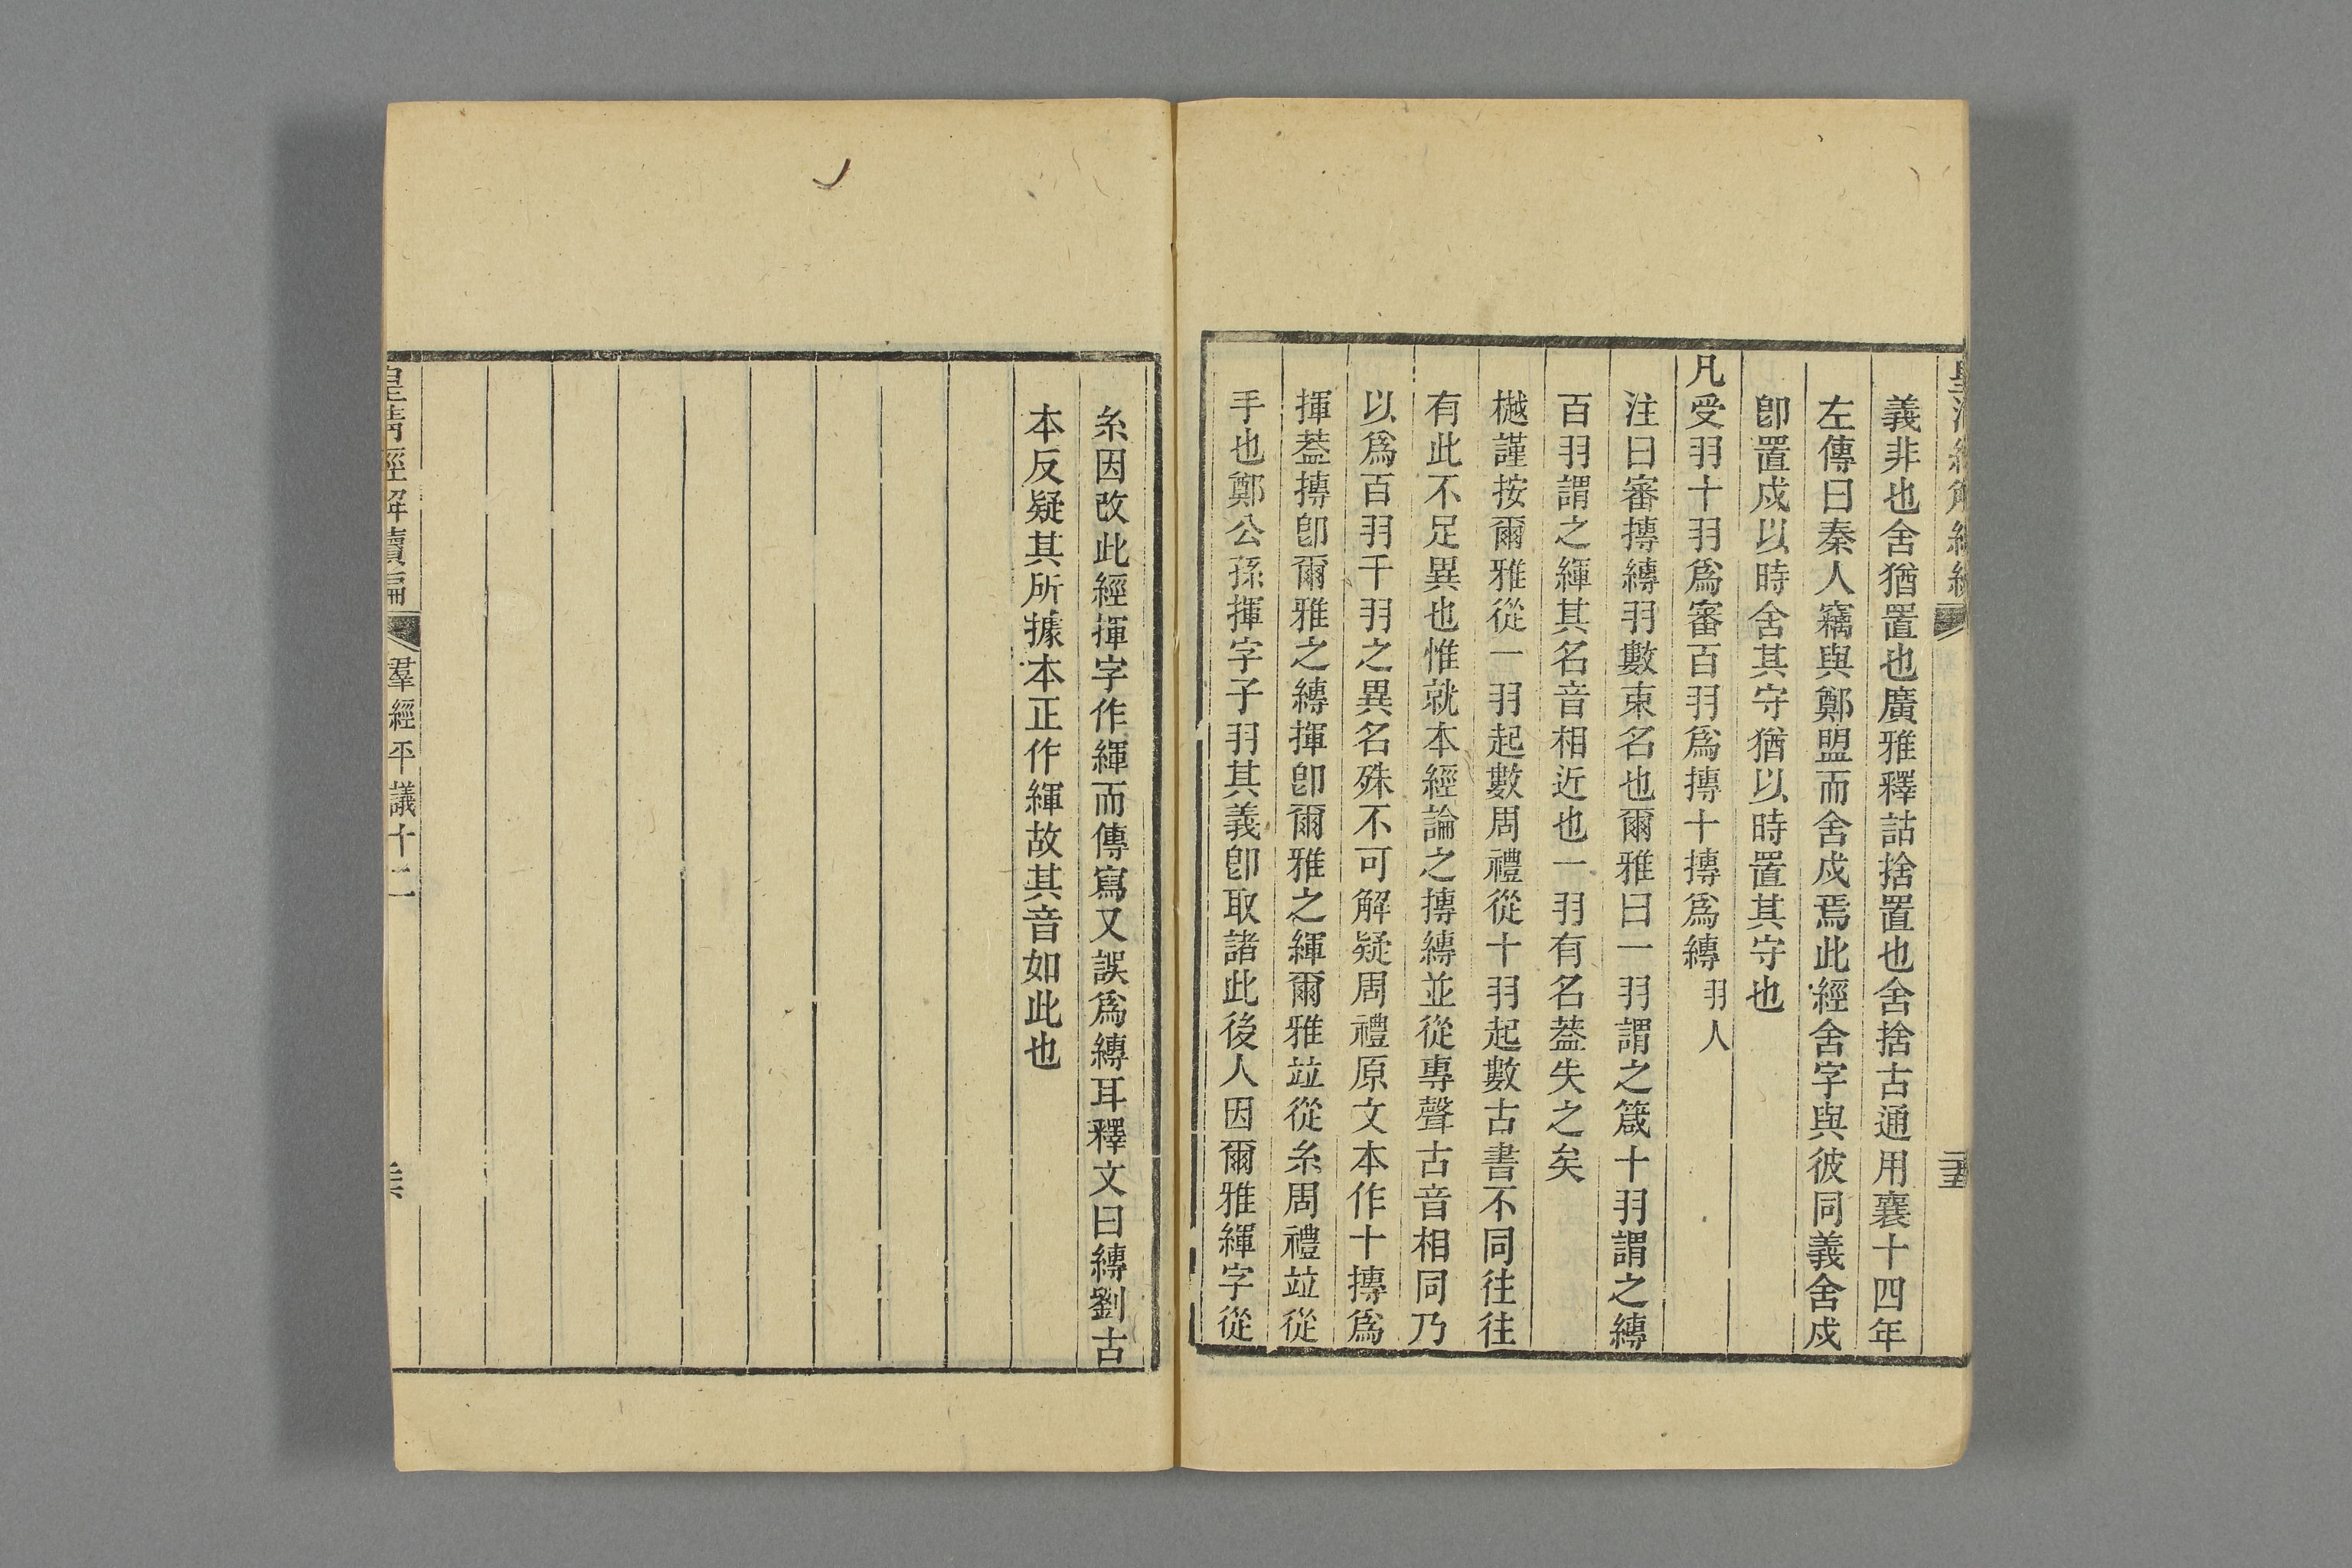 義非也舍猶置也廣雅釋詁捨置也舍捨古通用襄十四年
左傳曰秦人竊與鄭盟而舍戍焉此經舍字與彼同義舍戍
卽置戍以時舍其守猶以時置其守也
凡受羽十羽爲審百羽爲摶十摶爲縳 羽人
注曰審摶縳羽數束名也爾雅曰一羽謂之箴十羽謂之縳
百羽謂之緷其名音相近也一羽有名葢失之矣
樾謹按爾雅從一羽起數周禮從十羽起數古書不同往往
有此不足異也惟就本經論之摶縳並從專聲古音相同乃
以爲百羽千羽之異名殊不可解疑周禮原文本作十摶爲
揮葢摶卽爾雅之縳揮卽爾雅之緷爾雅竝從糸周禮竝從
手也鄭公孫揮字子羽其義卽取諸此後人因爾雅緷字從
糸因改此經揮字作緷而傳寫又誤爲縳耳釋文曰縳劉古
本反疑其所據本正作緷故其音如此也
皇清經解續編 羣經平議十二